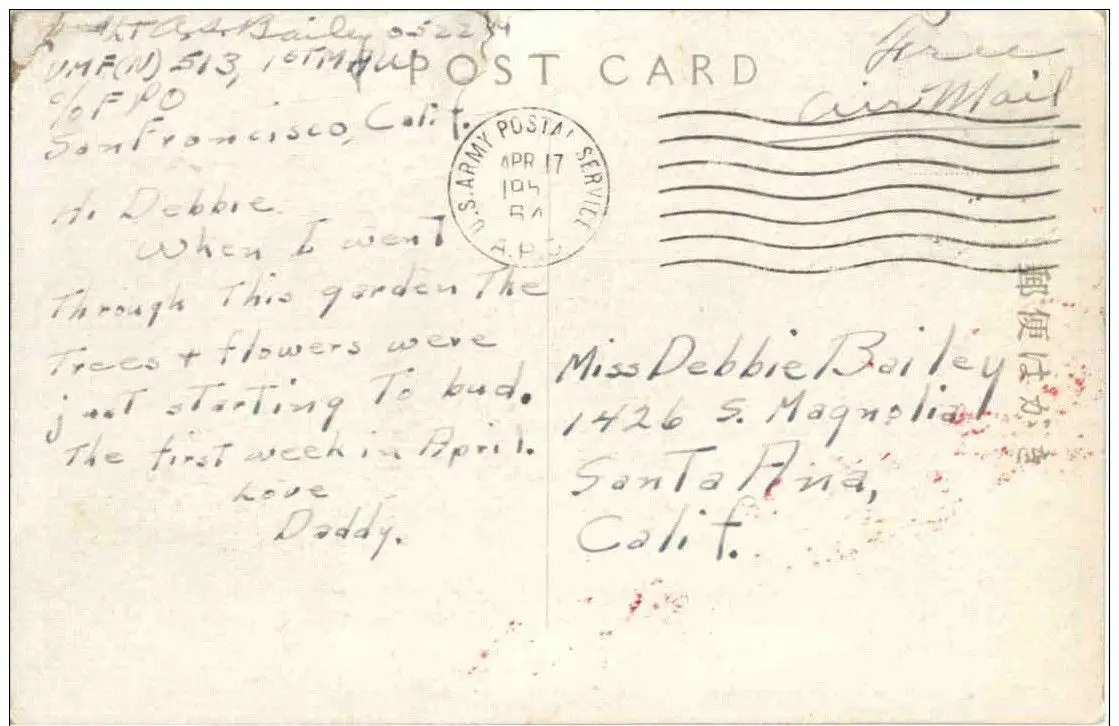 Lt A. S. Bailey 052234
VMF(N) 513, 1ST MAW
c/o FPO
San Francisco, Calif.
POST CARD
Free
Air Mail
U.S. ARMY POSTAL SERVICE
APR 17
A.P.O.
Hi Debbie
When I went
Through This garden The
Trees + flowers were
just starting To bud.
The first week in April.
Love
Daddy.
Miss Debbie Bailey
1426 S. Magnolia
Santa Ana,
Calif.
郵便はがき